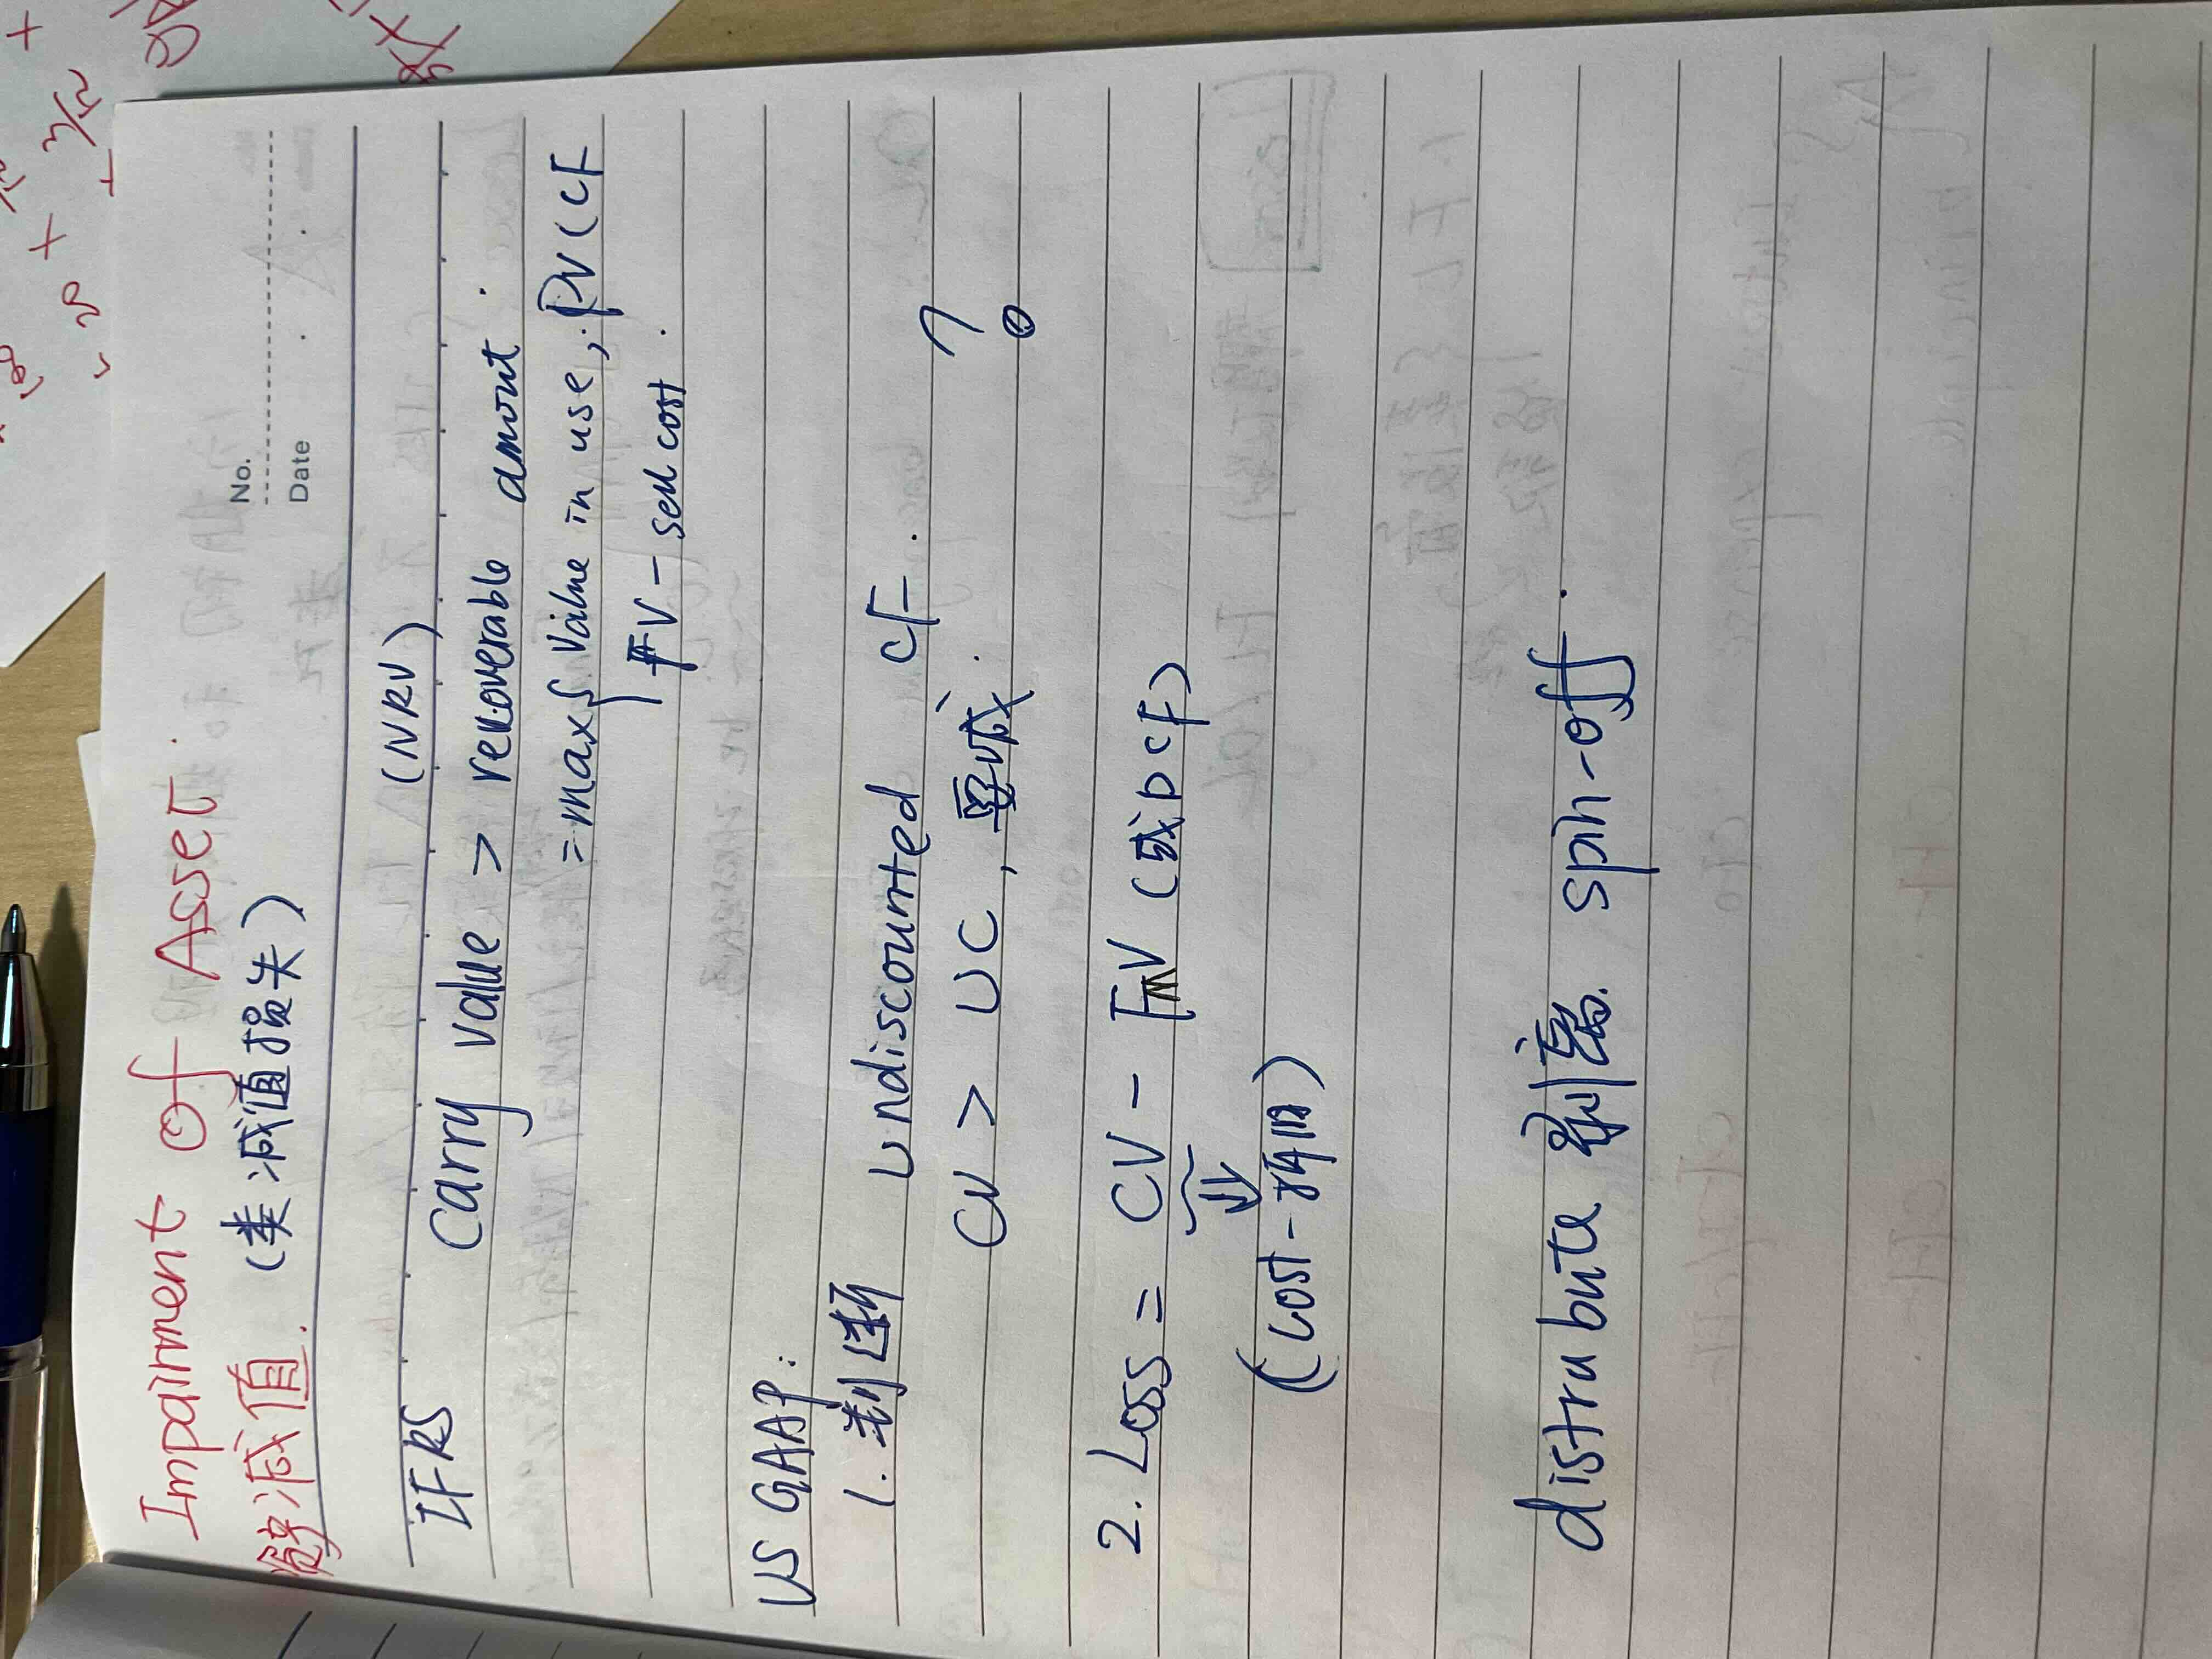 No.
Date
Impairment of Asset.
减值.
(类减值损失)
(NRV)
IFRS Carry value > recoverable amount.
= max { Value in use, PV(CF
FV - sell cost.
US GAAP:
1. 判断 undiscounted CF.
CV > UC, 要减. ?
2. Loss = CV - FV (或DCF)
(cost-折旧)
distrabute 剥离. spin-off.